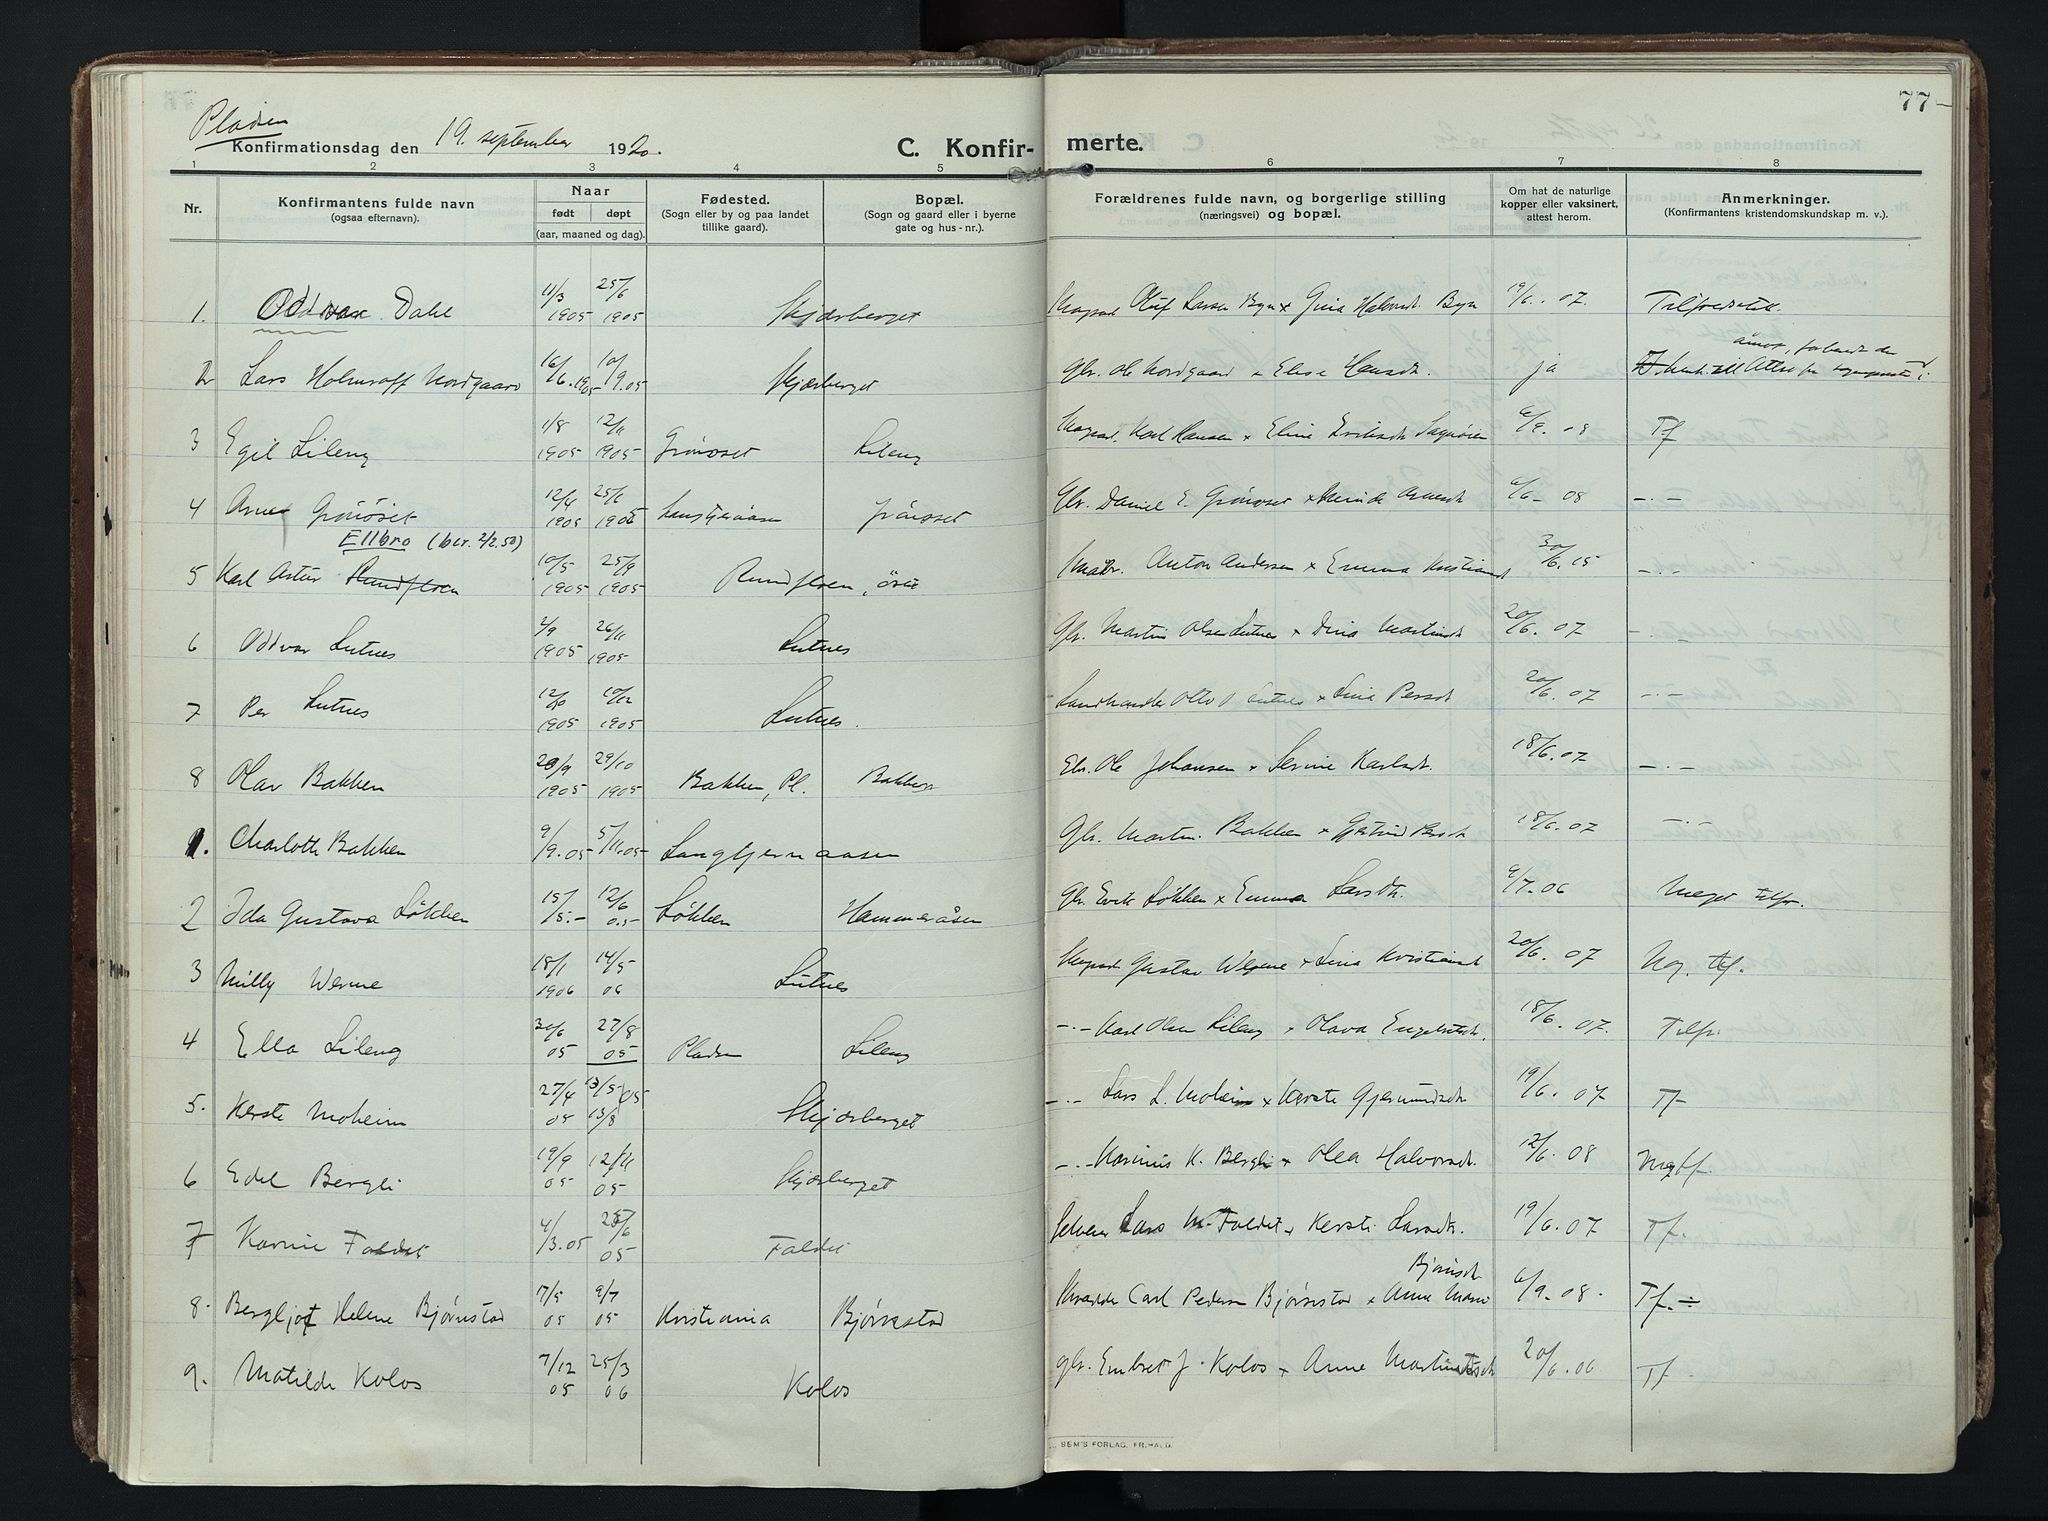 77
Pladsen
Konfirmationsdag den 19. september 1920.
C. Konfirmerte.
1 2 3 4 5 6 7 8
Nr.
Konfirmantens fulde navn
(ogsaa efternavn).
Naar
født døpt
(aar, maaned og dag).
Fødested.
(Sogn eller by og paa landet
tillike gaard).
Bopæl.
(Sogn og gaard eller i byerne
gate og hus-nr.).
Forældrenes fulde navn, og borgerlige stilling
(næringsvei) og bopæl.
Om hat de naturlige
kopper eller vaksinert,
attest herom.
Anmerkninger.
(Konfirmantens kristendomskundskap m. v.).
1. Oddvar Dahl 11/3 1905 25/6 1905 Skjærberget Oluf Larsen Byn x Gina Halvorsdt. Byn 19/6. 07.
2 Lars Nordgaard 16/6. 1905 Skjærberget Gbr. Ole Nordgaard x Elise Hansdt. ja
3 Egil Lileng 1/8 1905 12/11 1905 Grönoset Lileng Karl Hansen x Eline Eriksdt. 6/9. 08 Tf
4 Arne Grönöset 12/4 1905 25/6 1905 Grönoset Gbr. Daniel E. Grönoset x 08 -.-
Ellbro (ber. 2/2.50)
5 Karl Artur Rundfloen 10/5 1905 25/9 1905 Rundfloen, Anton Andersen x Emma Kristiansdt 30/6. 15 -.-
6 Oddvar Lutnes 2/9 1905 26/11 1905 Lutnes Gbr. Martin Olsen Lutnes x Dina Martinsdt 20/6. 07 -.-
7 Per Lutnes 1905 10/12 1905 Lutnes. Landhandler Otto Lutnes x Lina Persdt 20/6. 07 -.-
8 Olav Bakken 20/9 1905 29/10 1905 Bakken, Pl. Bakken Ole Johansen x Serine Karlsdt. 18/6. 07 -.-
1. Charlotte Bakken 9/9.05 5/11.05 Langtjernaasen Gbr. Martin Bakken x 18/6. 07 -.-
2 Ida Gustava Løkken 15/5.- 12/6 05 Løkken Hammeråsen Gbr. Erik Løkken x Emma Larsdt. 06 Meget tilfr.
3 Milly Werme 18/1 1906 14/5 06 Lutnes Gustav Werme x Lina Kristiansdt 20/6. 07 Mg. tf.
4 Ella Lileng 30/6 05 27/8 05 Pladsen Lileng -.- Karl Olsen Lileng x Olava Engebretsdt. 18/6. 07. Tilfr.
5. Kerste Moheim 27/4 05 13/5 05 13/8 Skjærberget -.- Lars L. Moheim x Kerste Gjermundsdt 19/6. 07 Tf
6 Edel Bergli 19/9 05 12/11 05 Skjærberget -.- Marinus K. Bergli x Olea Halvorsdt. 12/6. 08 Mg tf.
7 Karine Faldet 4/3.05 25/6 05 Faldet Selveier Lars M. Faldet x Kersti Larsdt. 19/6. 07 Tf.
8. Bergljot Helene Bjørnstad 17/5 05 9/7 05 Kristiania Bjørnstad Carl Pedersen Bjørnstad x Anne Marie Bjørnsdt 6/9. 08. Tf. ÷
9. Matilde Kolos 7/12 05 25/3 06 Kolos gbr. Embret J. Kolos x Anne Martinsdt 20/6. 06 Tf
SEM'S FORLAG, FR.HALD.